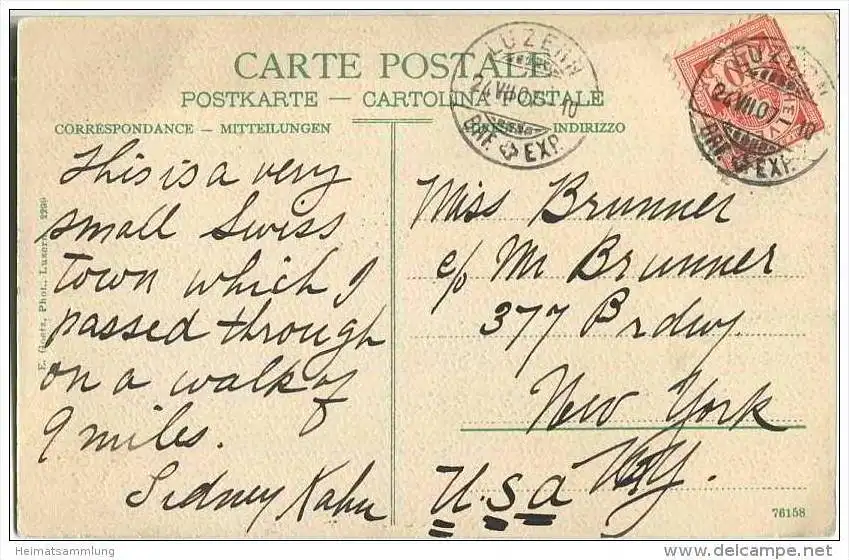 CARTE POSTALE
POSTKARTE — CARTOLINA POSTALE
CORRESPONDANCE — MITTEILUNGEN
INDIRIZZO
LUZERN
BRF. EXP.
LUZERN
BRF. EXP.
This is a very
small Swiss
town which I
passed through
on a walk of
9 miles.
Sidney Kahn
Miss Brunner
c/o M Brunner
377 Brdwy.
New York
U.S.A
E. Goetz, Phot., Luzern. 2299
76158
Heimatsammlung
For Unlimited Use delcampe.net